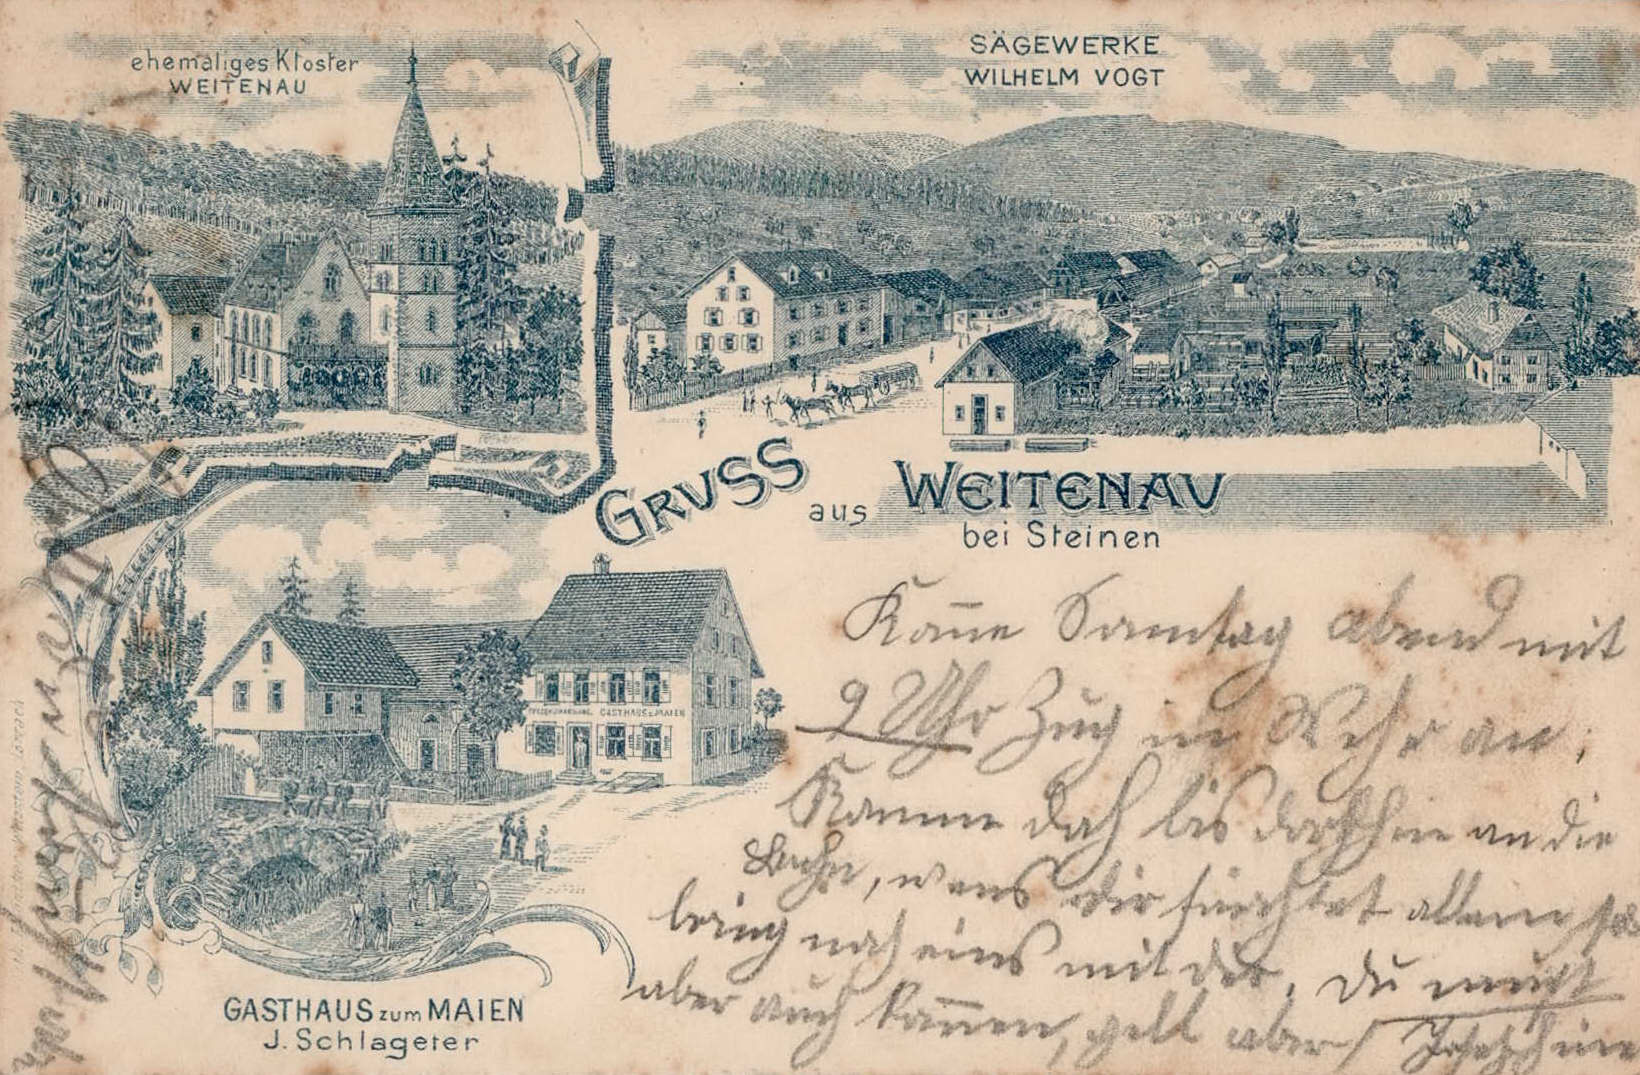 ehemaliges Kloster
WEITENAU
SÄGEWERKE
WILHELM VOGT
GRUSS aus WEITENAU
bei Steinen
GASTHAUS z. MAIEN
GASTHAUS zum MAIEN
J. Schlageter
Kom̄e Samstag abend mit
9 Uhr Zug in Wehr an,
Komme doch bis dorthin an die
Bahn, wens dir fürchtet allein so
bring noch eins mit dir. Du mußt
aber auch kom̄en, gell aber! Josephine